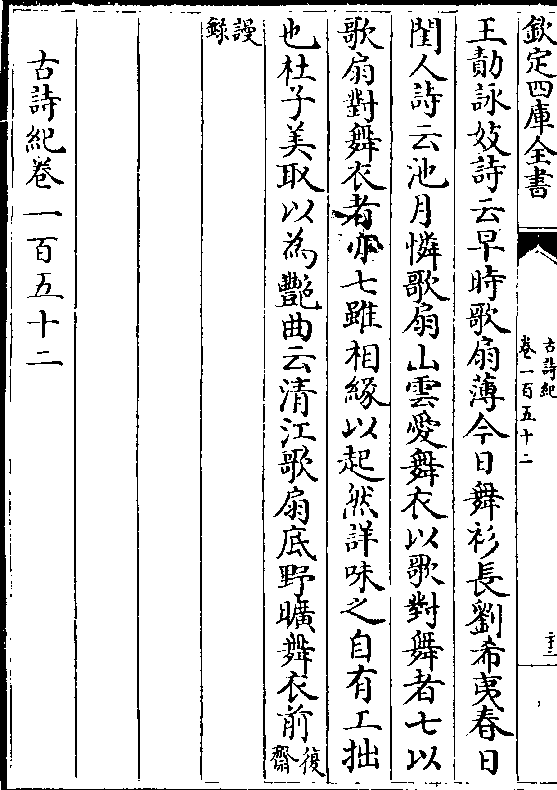 欽定四庫全書
古詩紀
卷一百五十二
王勣詠妓詩云早時歌扇薄今日舞衫長劉希夷春日
閨人詩云池月憐歌扇山雲愛舞衣以歌對舞者七以
歌扇對舞衣者亦七雖相緣以起然詳味之自有工拙
也杜子美取以為艷曲云清江歌扇底野曠舞衣前復齋
謾錄
古詩紀卷一百五十二